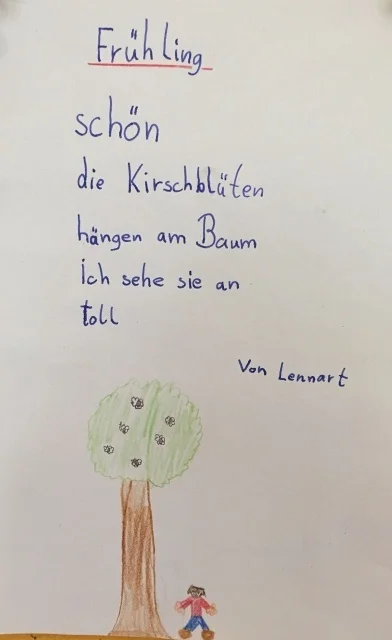 Frühling
schön
die Kirschblüten
hängen am Baum
ich sehe sie an
toll
Von Lennart